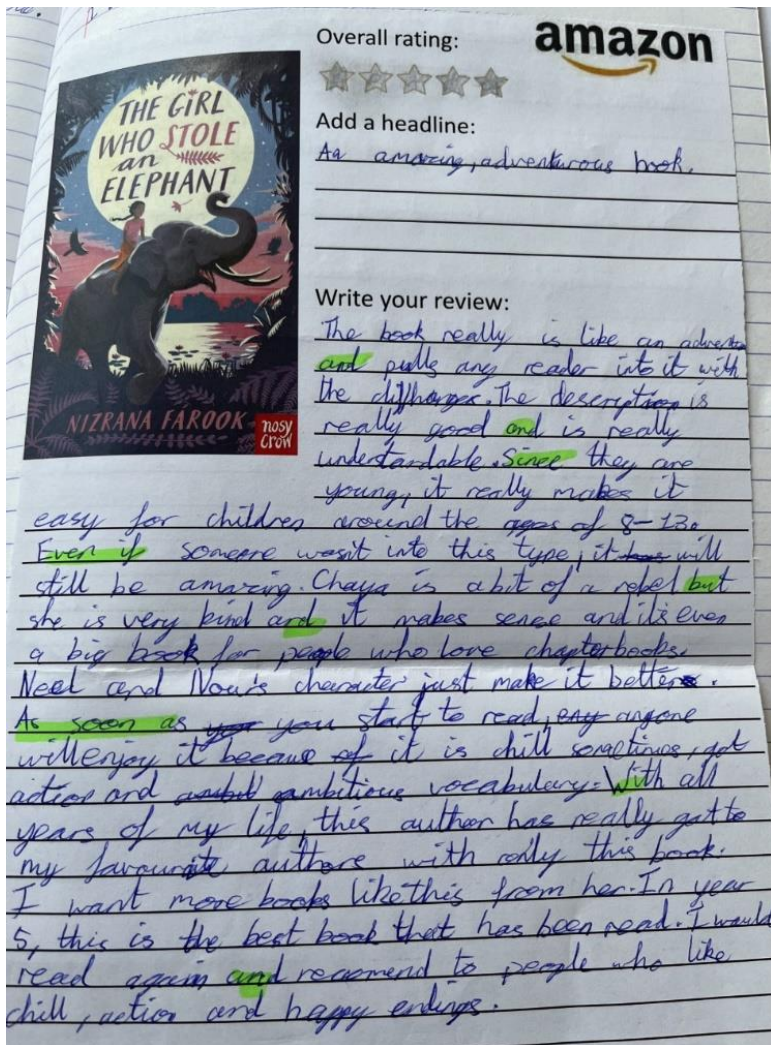 Overall rating:
amazon
THE GIRL
WHO STOLE
an
ELEPHANT
NIZRANA FAROOK
nosy
crow
Add a headline:
An amazing, adventurous book.
Write your review:
The book really is like an adventure
and pulls any reader into it with
the cliffhanger. The description is
really good and is really
understandable. Since they are
young, it really makes it
easy for children around the ages of 8-13.
Even if someone wasn't into this type, it will
still be amazing. Chaya is a bit of a rebel but
she is very kind and it makes sense and it's even
a big book for people who love chapterbooks.
Neel and Nour's character just make it better.
As soon as you start to read, anyone
will enjoy it because it is chill sometimes, got
action and ambitious vocabulary. With all
years of my life, this author has really got to
my favourite authors with only this book.
I want more books like this from her. In year
5, this is the best book that has been read. I would
read again and recomend to people who like
chill, action and happy endings.